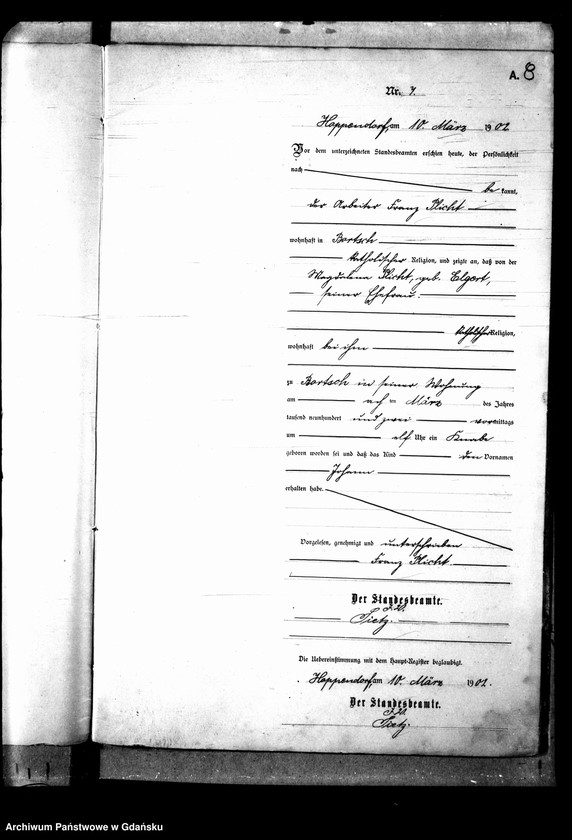 A. 8
Nr. 7.
Hoppendorf, am 10. März 1902
Vor dem unterzeichneten Standesbeamten erschien heute, der Persönlichkeit
nach
be kannt,
der Arbeiter Franz Plicht
wohnhaft in Bortsch
katholischer Religion, und zeigte an, daß von der
Magdalena Plicht, geb. Elgert,
seiner Ehefrau.
katholischer Religion,
wohnhaft bei ihm
zu Bortsch in seiner Wohnung
am ten März des Jahres
tausend neunhundert und zwei vormittags
um elf Uhr ein Knabe
geboren worden sei und daß das Kind den Vornamen
Johann
erhalten habe.
Vorgelesen, genehmigt und unterschrieben
Franz Plicht
Der Standesbeamte.
Die Uebereinstimmung mit dem Haupt-Register beglaubigt.
Hoppendorf, am 10. März 1902.
Der Standesbeamte.
Archiwum Państwowe w Gdańsku